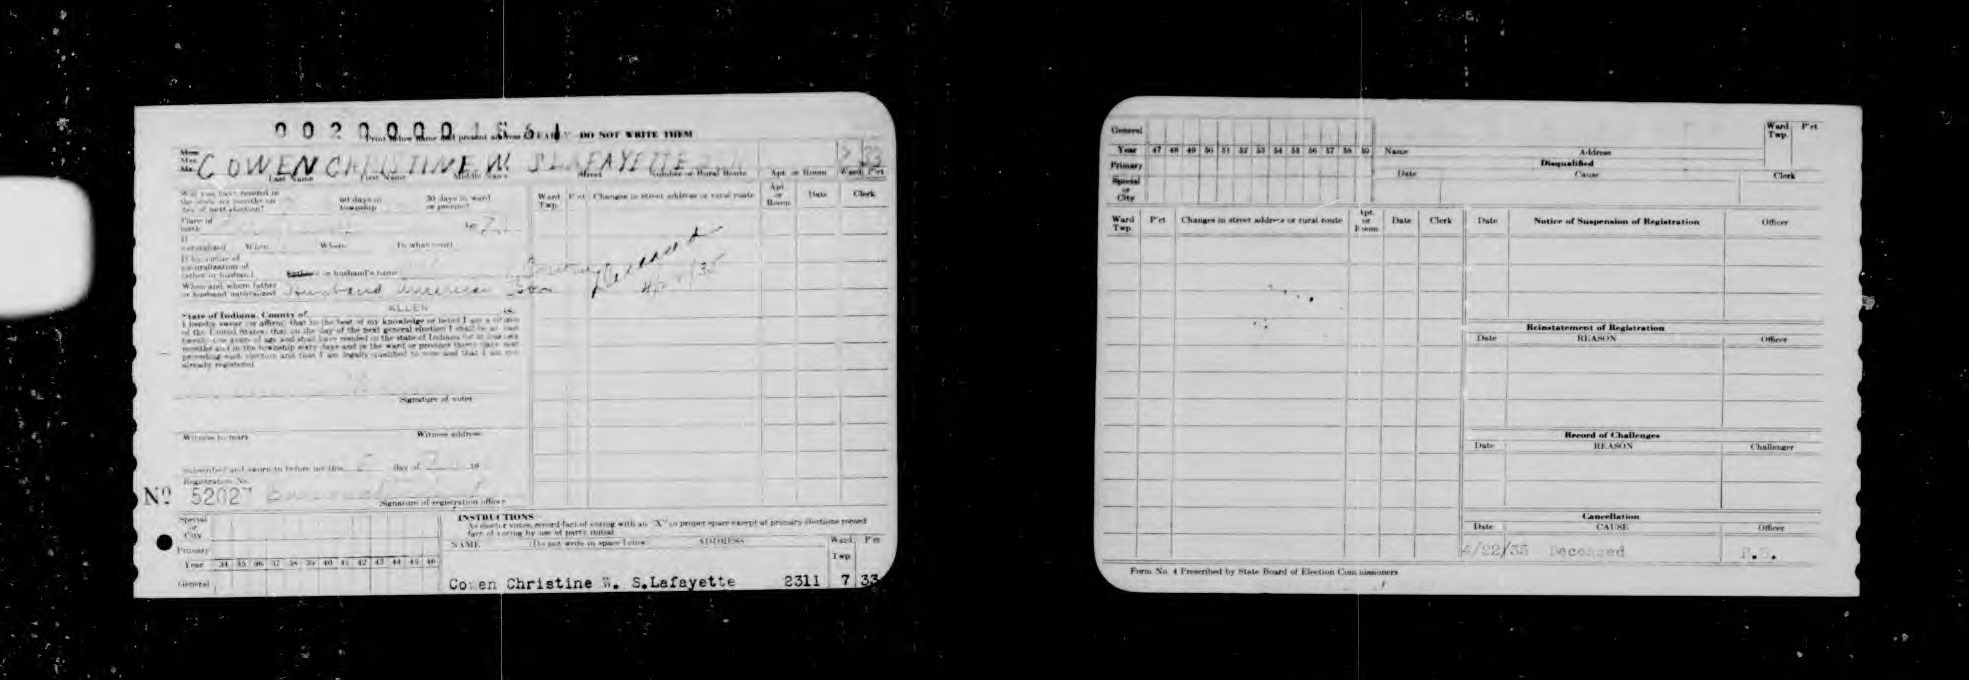 DO NOT WRITE THEM
COWEN CHRISTINE W. S LAFAYETTE 33
Last Name First Name Middle Name Street Number or Rural Route Apt. or Room Ward P'ct
Ward Twp. P'ct Changes in street address or rural route Apt. or Room Date Clerk
60 days in township 30 days in ward or precinct
Place of birth Age
naturalized When Where In what court
If by virtue of naturalization of father or husband or husband's name
When and where father or husband naturalized Husband American
Deceased
State of Indiana, County of ALLEN ss.
I hereby swear (or affirm) that to the best of my knowledge or belief I am a citizen
of the United States; that on the day of the next general election I shall be at least
twenty-one years of age and shall have resided in the state of Indiana for at least six
months and in the township sixty days and in the ward or precinct thirty days next
preceding such election and that I am legally qualified to vote and that I am not
already registered
Signature of voter
Witness to mark Witness address
Subscribed and sworn to before me this day of 19
Registration No.
No 52027
Signature of registration officer
Special or City
Primary
Year 34 35 36 37 38 39 40 41 42 43 44 45 46
General
INSTRUCTIONS
As elector votes, record fact of voting with an "X" in proper space except at primary elections record
fact of voting by use of party initial.
NAME (Do not write in space below) ADDRESS Ward Twp. P'ct
Cowen Christine W. S.Lafayette 2311 7 33
General
Year 47 48 49 50 51 52 53 54 55 56 57 58 59
Primary
Special or City
Name Address Ward Twp. P'ct
Disqualified
Date Cause Clerk
Ward Twp. P'ct Changes in street address or rural route Apt. or Room Date Clerk
Date Notice of Suspension of Registration Officer
Reinstatement of Registration
Date REASON Officer
Record of Challenges
Date REASON Challenger
Cancellation
Date CAUSE Officer
4/22/35 Deceased
Form No. 4 Prescribed by State Board of Election Commissioners